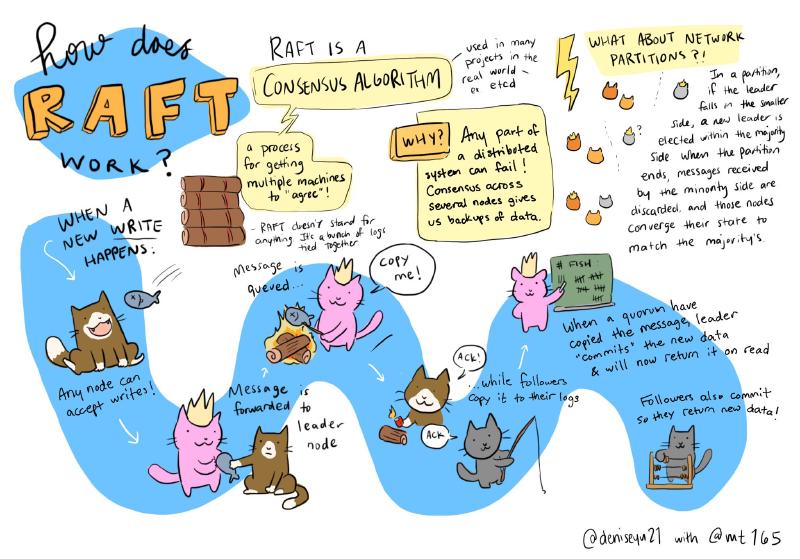 how does
RAFT
WORK?
RAFT IS A
CONSENSUS ALGORITHM
used in many
projects in the
real world -
ex etcd
a process
for getting
multiple machines
to "agree"!
- RAFT doesn't stand for
anything. It's a bunch of logs
tied together.
WHY?
Any part of
a distributed
system can fail!
Consensus across
several nodes gives
us backups of data.
WHAT ABOUT NETWORK
PARTITIONS?!
In a partition,
if the leader
falls in the smaller
side, a new leader is
elected within the majority
side. When the partition
ends, messages received
by the minority side are
discarded, and those nodes
converge their state to
match the majority's.
?
WHEN A
NEW WRITE
HAPPENS:
Any node can
accept writes!
Message is
forwarded to
leader
node
Message is
queued...
COPY
ME!
ACK!
ACK
...while followers
copy it to their logs
# FISH:
When a quorum have
copied the message, leader
"commits" the new data
& will now return it on read
Followers also commit
so they return new data!
@deniseyu21 with @mt165